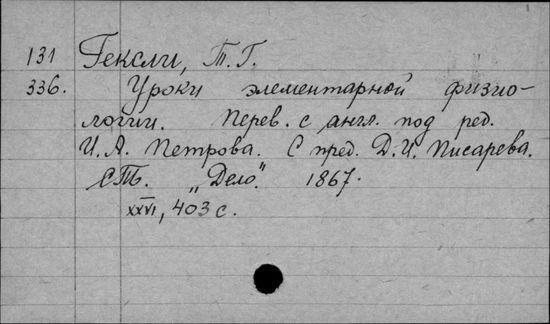 131 Гексли, Т. Г.
336. Уроки элементарной физио-
логии. Перев. с англ. под ред.
И. А. Петрова. С пред. Д. И. Писарева.
СПб. „Дело". 1867.
XXVI, 403 с.